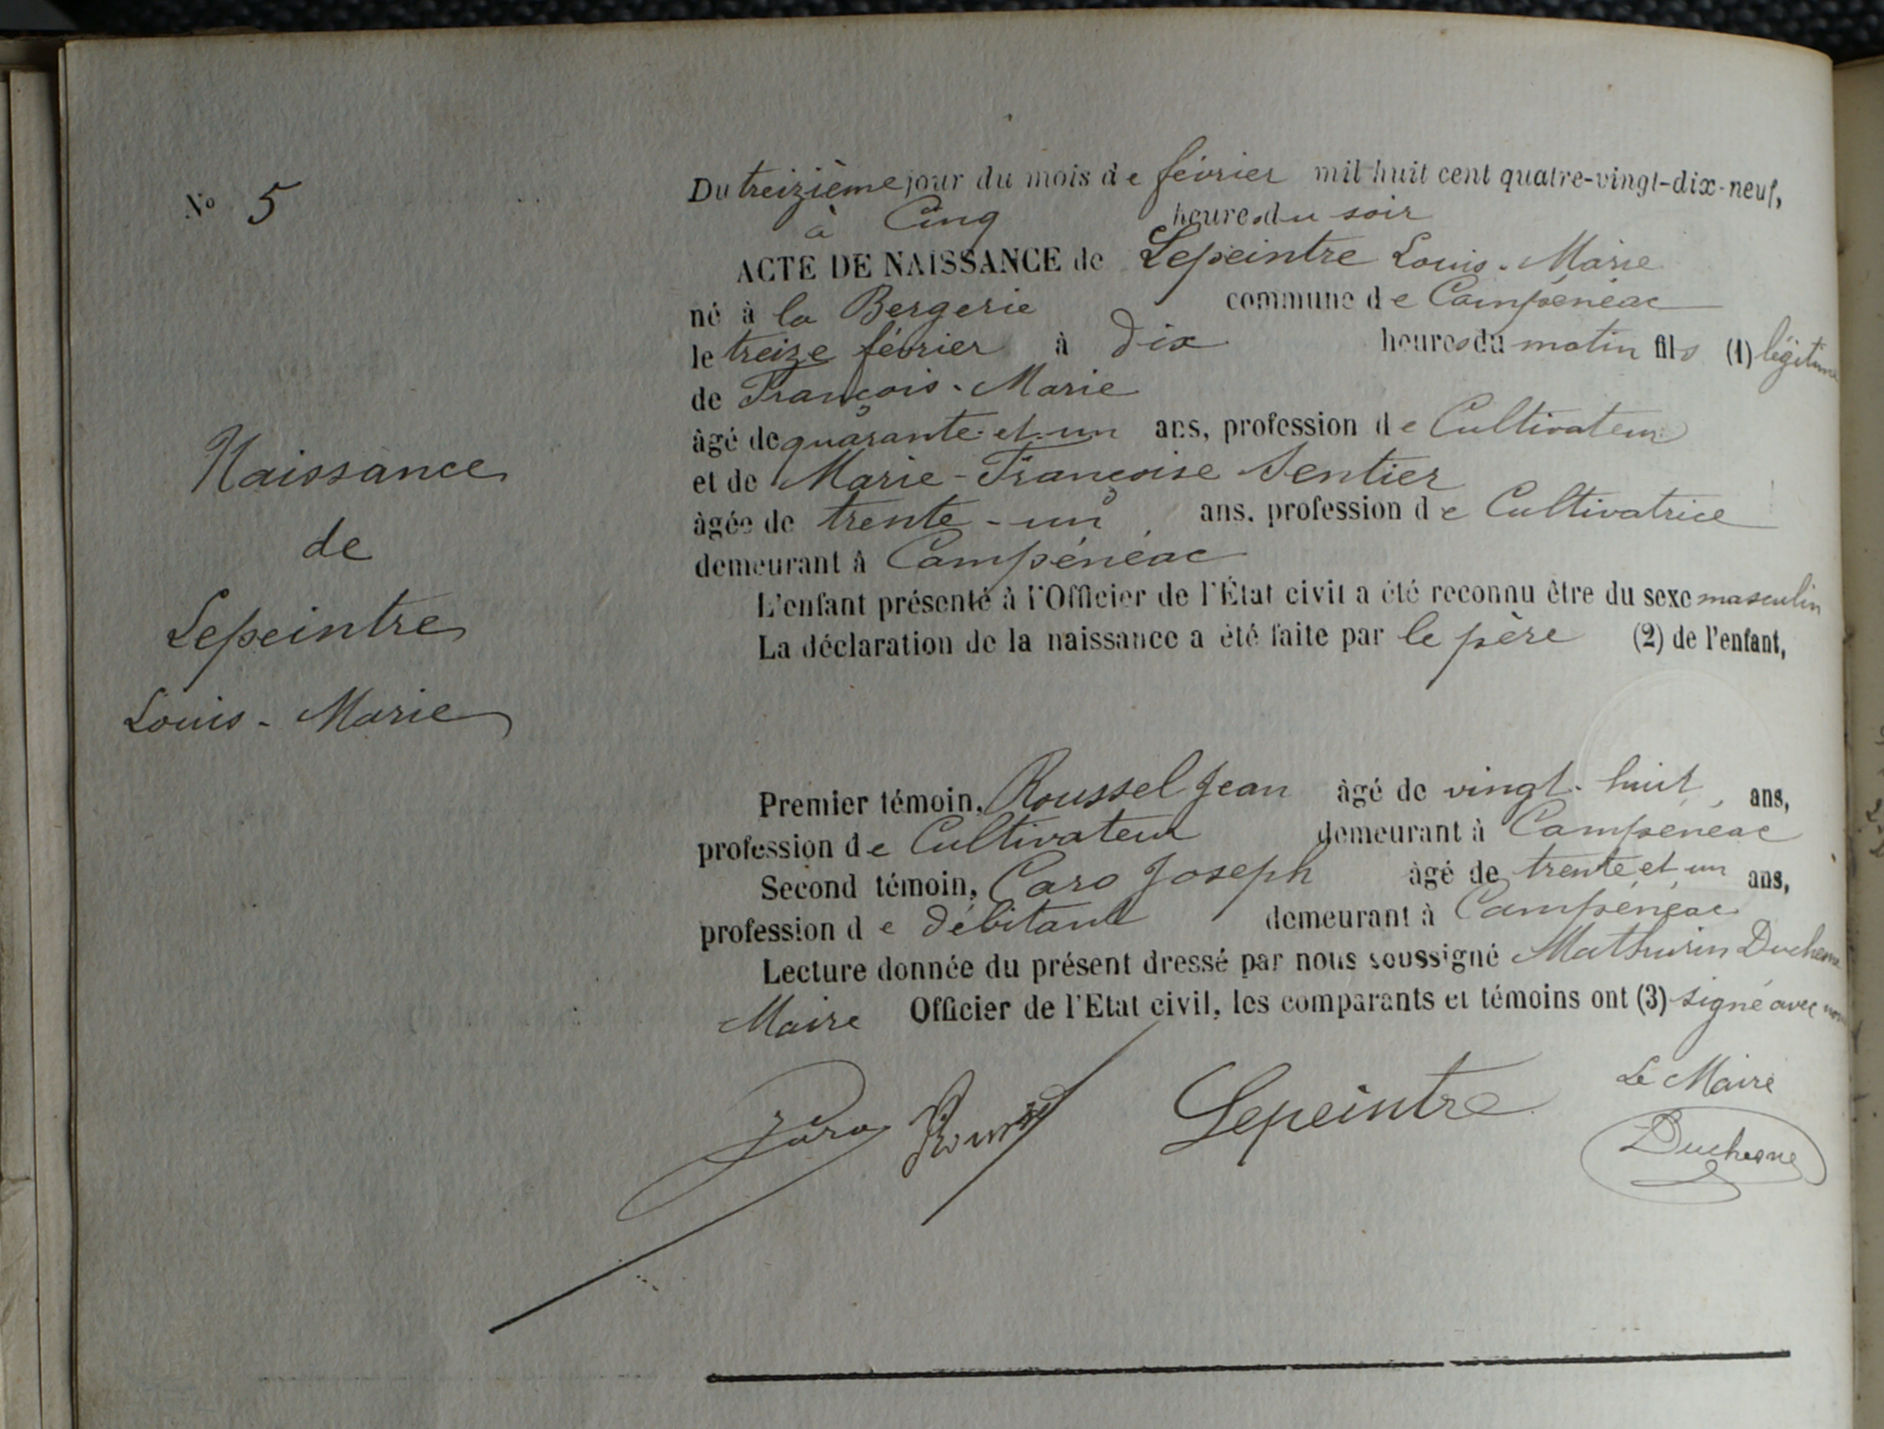 N° 5
Naissance
de
Lepeintre
Louis - Marie
Du treizième jour du mois de février mil huit cent quatre-vingt-dix-neuf,
à Cinq heures du soir
ACTE DE NAISSANCE de Lepeintre Louis - Marie
né à la Bergerie commune de Campénéac
le treize février à dix heures du matin fils (1) légitime
de François - Marie
âgé de quarante et un ans, profession de Cultivateur
et de Marie - Françoise Sentier
âgée de trente - un ans, profession de Cultivatrice
demeurant à Campénéac
L'enfant présenté à l'Officier de l'État civil a été reconnu être du sexe masculin
La déclaration de la naissance a été faite par le père (2) de l'enfant,
Premier témoin, Roussel Jean âgé de vingt - huit ans,
profession de Cultivateur demeurant à Campénéac
Second témoin, Caro Joseph âgé de trente et un ans,
profession de débitant demeurant à Campénéac
Lecture donnée du présent dressé par nous soussigné Mathurin Duchesne
Maire Officier de l'Etat civil, les comparants et témoins ont (3) signé avec nous
Le Maire
Caro Lepeintre Duchesne